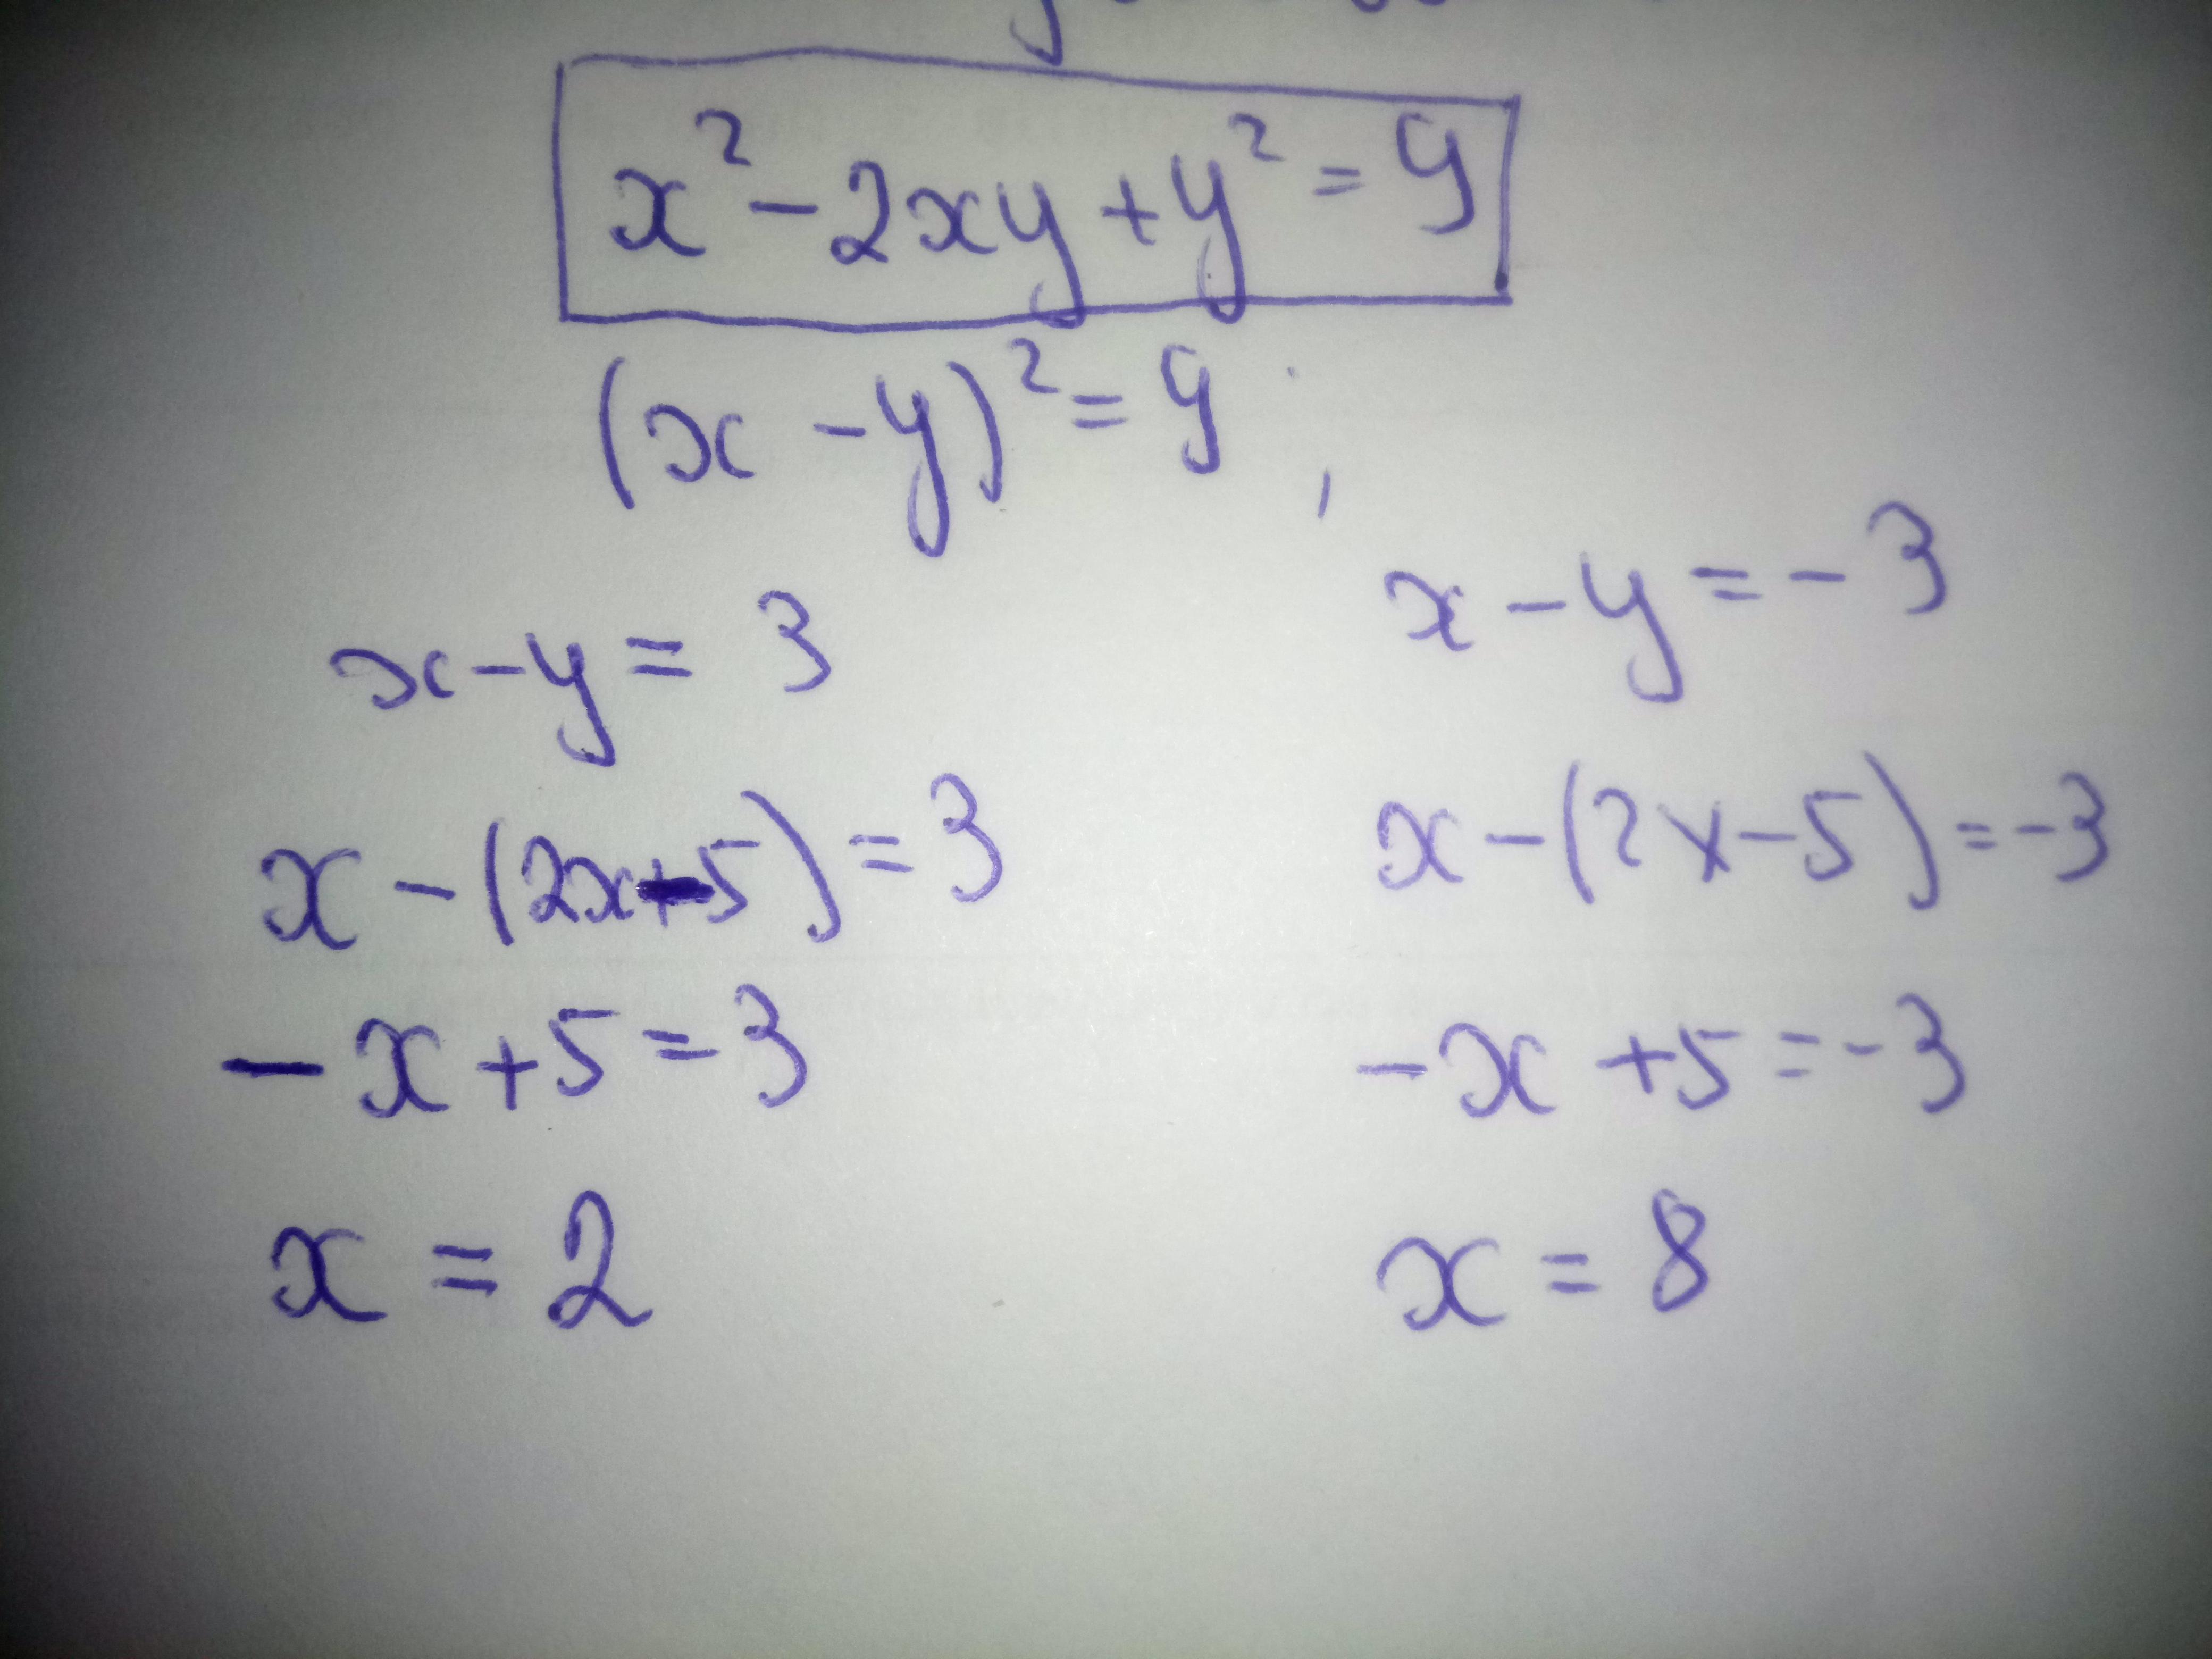 x² - 2xy + y² = 9
(x - y)² = 9,
x - y = 3
x - y = -3
x - (2x-5) = 3
x - (2x - 5) = -3
-x + 5 = 3
-x + 5 = -3
x = 2
x = 8